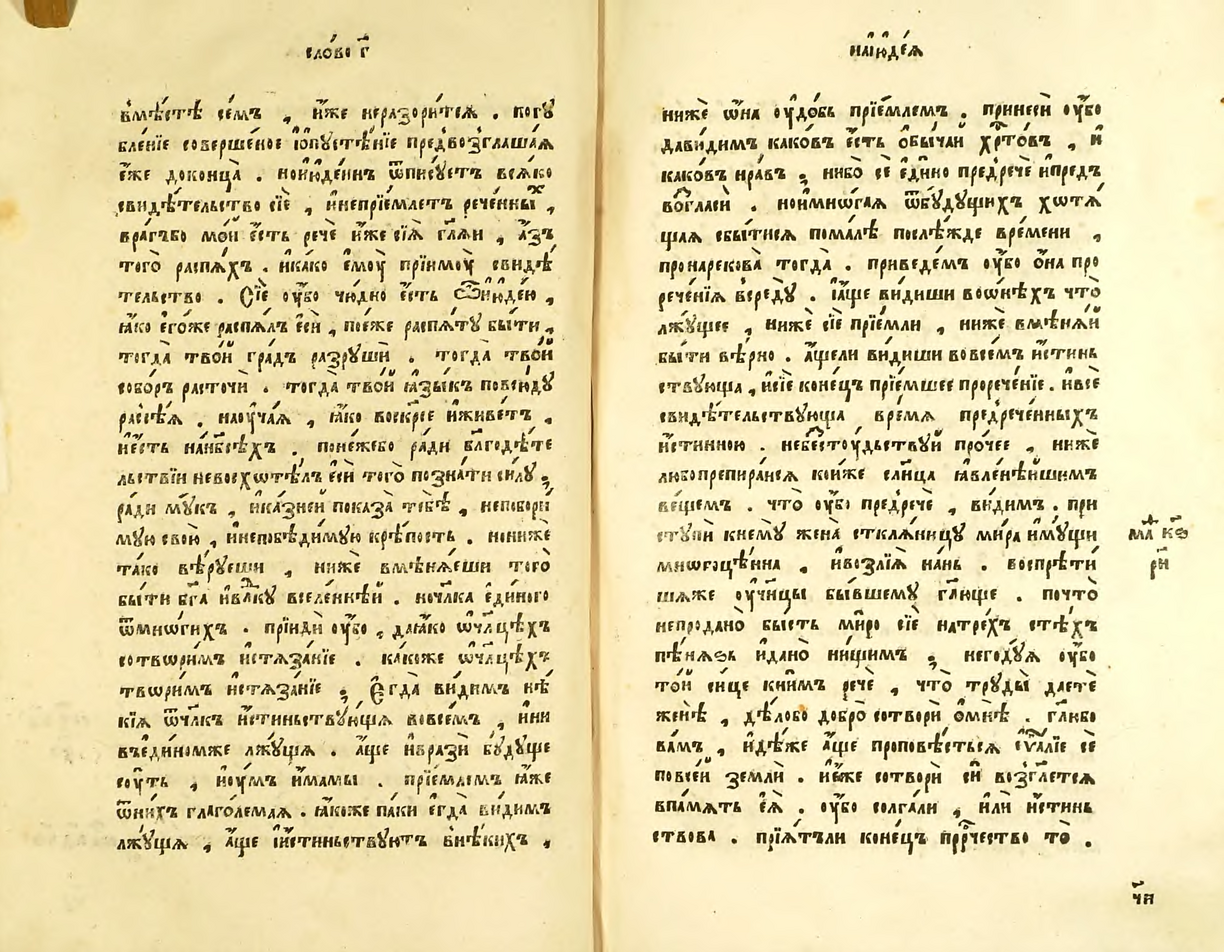 сло́во г҃
вмѣ́стѣ се́мъ , и҆́же неразори́тсѧ . погꙋ
бле́нїе соверше́ное і҆ѻпꙋстѣ́нїе предвозглаша́ѧ
є҆́же доконца̀ . ноію҆де́инъ ѿписꙋ́етъ всѧ́ко
свидѣ́тельство сїѐ , и҆непрїе́млетъ рече́нны́хъ ,
врагъбо мо́й є҆́сть речѐ и҆́же сїѧ̀ гл҃ѧи , а҆́зъ
того̀ распѧ́хъ . и҆ка́ко є҆моу̀ прїимоу̀ свидѣ́
тельство . Сїе ᲂу҆́бо чю́дно є҆́сть ѿію҆де́ю ,
ꙗ҆́ко є҆го́же распѧ́лъ є҆сѝ , пое́же распѧ́тꙋ бы́ти ,
тогда̀ тво́й гра́дъ разрꙋшѝ . тогда̀ тво́й
собо́ръ расточѝ . тогда̀ тво́й ꙗ҆зы́къ повсю́дꙋ
разсѣ́ѧ . наоу҆ча́ѧ , ꙗ҆́ко воскр҃се и҆живе́тъ ,
и҆е́сть нан҃бсѣ́хъ . поне́жебо ра́ди бл҃годѣ́те
льствїи невосхотѣ́лъ є҆сѝ того̀ позна́ти си́лꙋ ,
ра́ди мꙋ́къ , и҆ка́зней показа̀ тебѣ̀ , непобори́
мꙋю свою̀ , и҆непобѣди́мꙋю крѣ́пость . нониже
та́ко вѣ́рꙋеши , ниже вмѣнѧ́еши того̀
бы́ти бг҃а и҆вл҃кꙋ вселе́ннѣй . ночл҃ка є҆ди́ного
ѿмнѡ́гихъ . прїидѝ ᲂу҆́бо , даꙗ҆́ко ѡ҆чл҃цѣхъ
сотвори́мъ и҆стѧза́нїе . ка́коже ѡ҆чл҃цѣхъ
твори́мъ и҆стѧза́нїе , Є҆гда̀ ви́димъ нѣ́
кїѧ ѿчл҃къ и҆́стиньствꙋ́ющїѧ вовсе́мъ , и҆ни
въеди́номже лжꙋ́щїѧ . а҆́ще и҆врази̂ бꙋ́дꙋще
соу́ть , и҆оу́мъ и҆́мамы . прїе́млемъ ꙗ҆́же
ѿни́хъ глаго́лемаѧ . ꙗ҆́коже па́ки є҆гда̀ ви́димъ
лжꙋ́щїѧ , а҆́ще и҆и҆́стиньствꙋютъ внѣ́кихъ ,
наію҆де́ѧ
нижѐ ѡ҆на ᲂу҆до́бь прїе́млемъ . принесѝ ᲂу҆́бо
да́видимъ како́въ є҆́сть ѻ҆бы́чай хрⷭ҇то́въ , и҆
како́въ нра́въ , нибо́ се є҆ди́но предречѐ и҆предъ
возгласѝ . ноимнѡ́гаѧ ѿбꙋ́дꙋщихъ хотѧ́
щаѧ сбы́тисѧ пома́лѣ послѣ́жде вре́мени ,
пронарекова̀ тогда̀ . приведе́мъ ᲂу҆́бо ѻ҆́на про
рече́нїѧ всредꙋ̀ . і҆а҆́ще ви́диши воѡ҆нѣ́хъ что̀
лжꙋ́щее , нижѐ сїѐ прїемли , нижѐ вмѣнѧ́й
бы́ти вѣ́рно . а҆́щели ви́диши вовсе́мъ и҆́стинь
ствꙋюща , и҆сїѐ коне́цъ прїе́мшее прорече́нїе . и҆всѐ
свидѣ́тельствꙋюща вре́мѧ предрече́нныхъ
и҆́стинною . небестоу́дьствꙋй про́чее , нижѐ
любопрепира́йсѧ коиже сл҃нца ꙗ҆вле́нѣйшимъ
ве́щемъ . что̀ ᲂу҆́бо предречѐ , ви́димъ . при
стꙋпѝ кнемꙋ̀ жена̀ сткла́ницꙋ ми́ра и҆мꙋ́щи
мнѡгоцѣ́нна , и҆возлїѧ̀ на́нь . воспрѣти́
шаже ᲂу҆чн҃цы бы́вшемꙋ гл҃юще . почто̀
непродано̀ бы́сть ми́ро сїѐ натре́хъ стѣ́хъ
пѣ́нѧѕь и҆дано̀ ни́щимъ , негодꙋ́ѧ ᲂу҆́бо
то́й си́це кни́мъ речѐ , что̀ трꙋды̀ дае́те
женѣ̀ , дѣ́лобо добро̀ сотворѝ ѡ҆мнѣ̀ . гл҃ю́бо
ва́мъ , и҆дѣ́же а҆́ще проповѣ́стьсѧ є҆ѵ҃а́лїе сѐ
повсе́й землѝ . и҆е́же сотворѝ сїѝ возгл҃етсѧ
впа́мѧть є҆ѧ̀ . ᲂу҆́бо солга́ли , и҆лѝ и҆́стинь
ствова . прїѧ́тъли коне́цъ прⷪ҇ро́чество то̀ .
ма҃ к҃ѕ
ри
чи҃